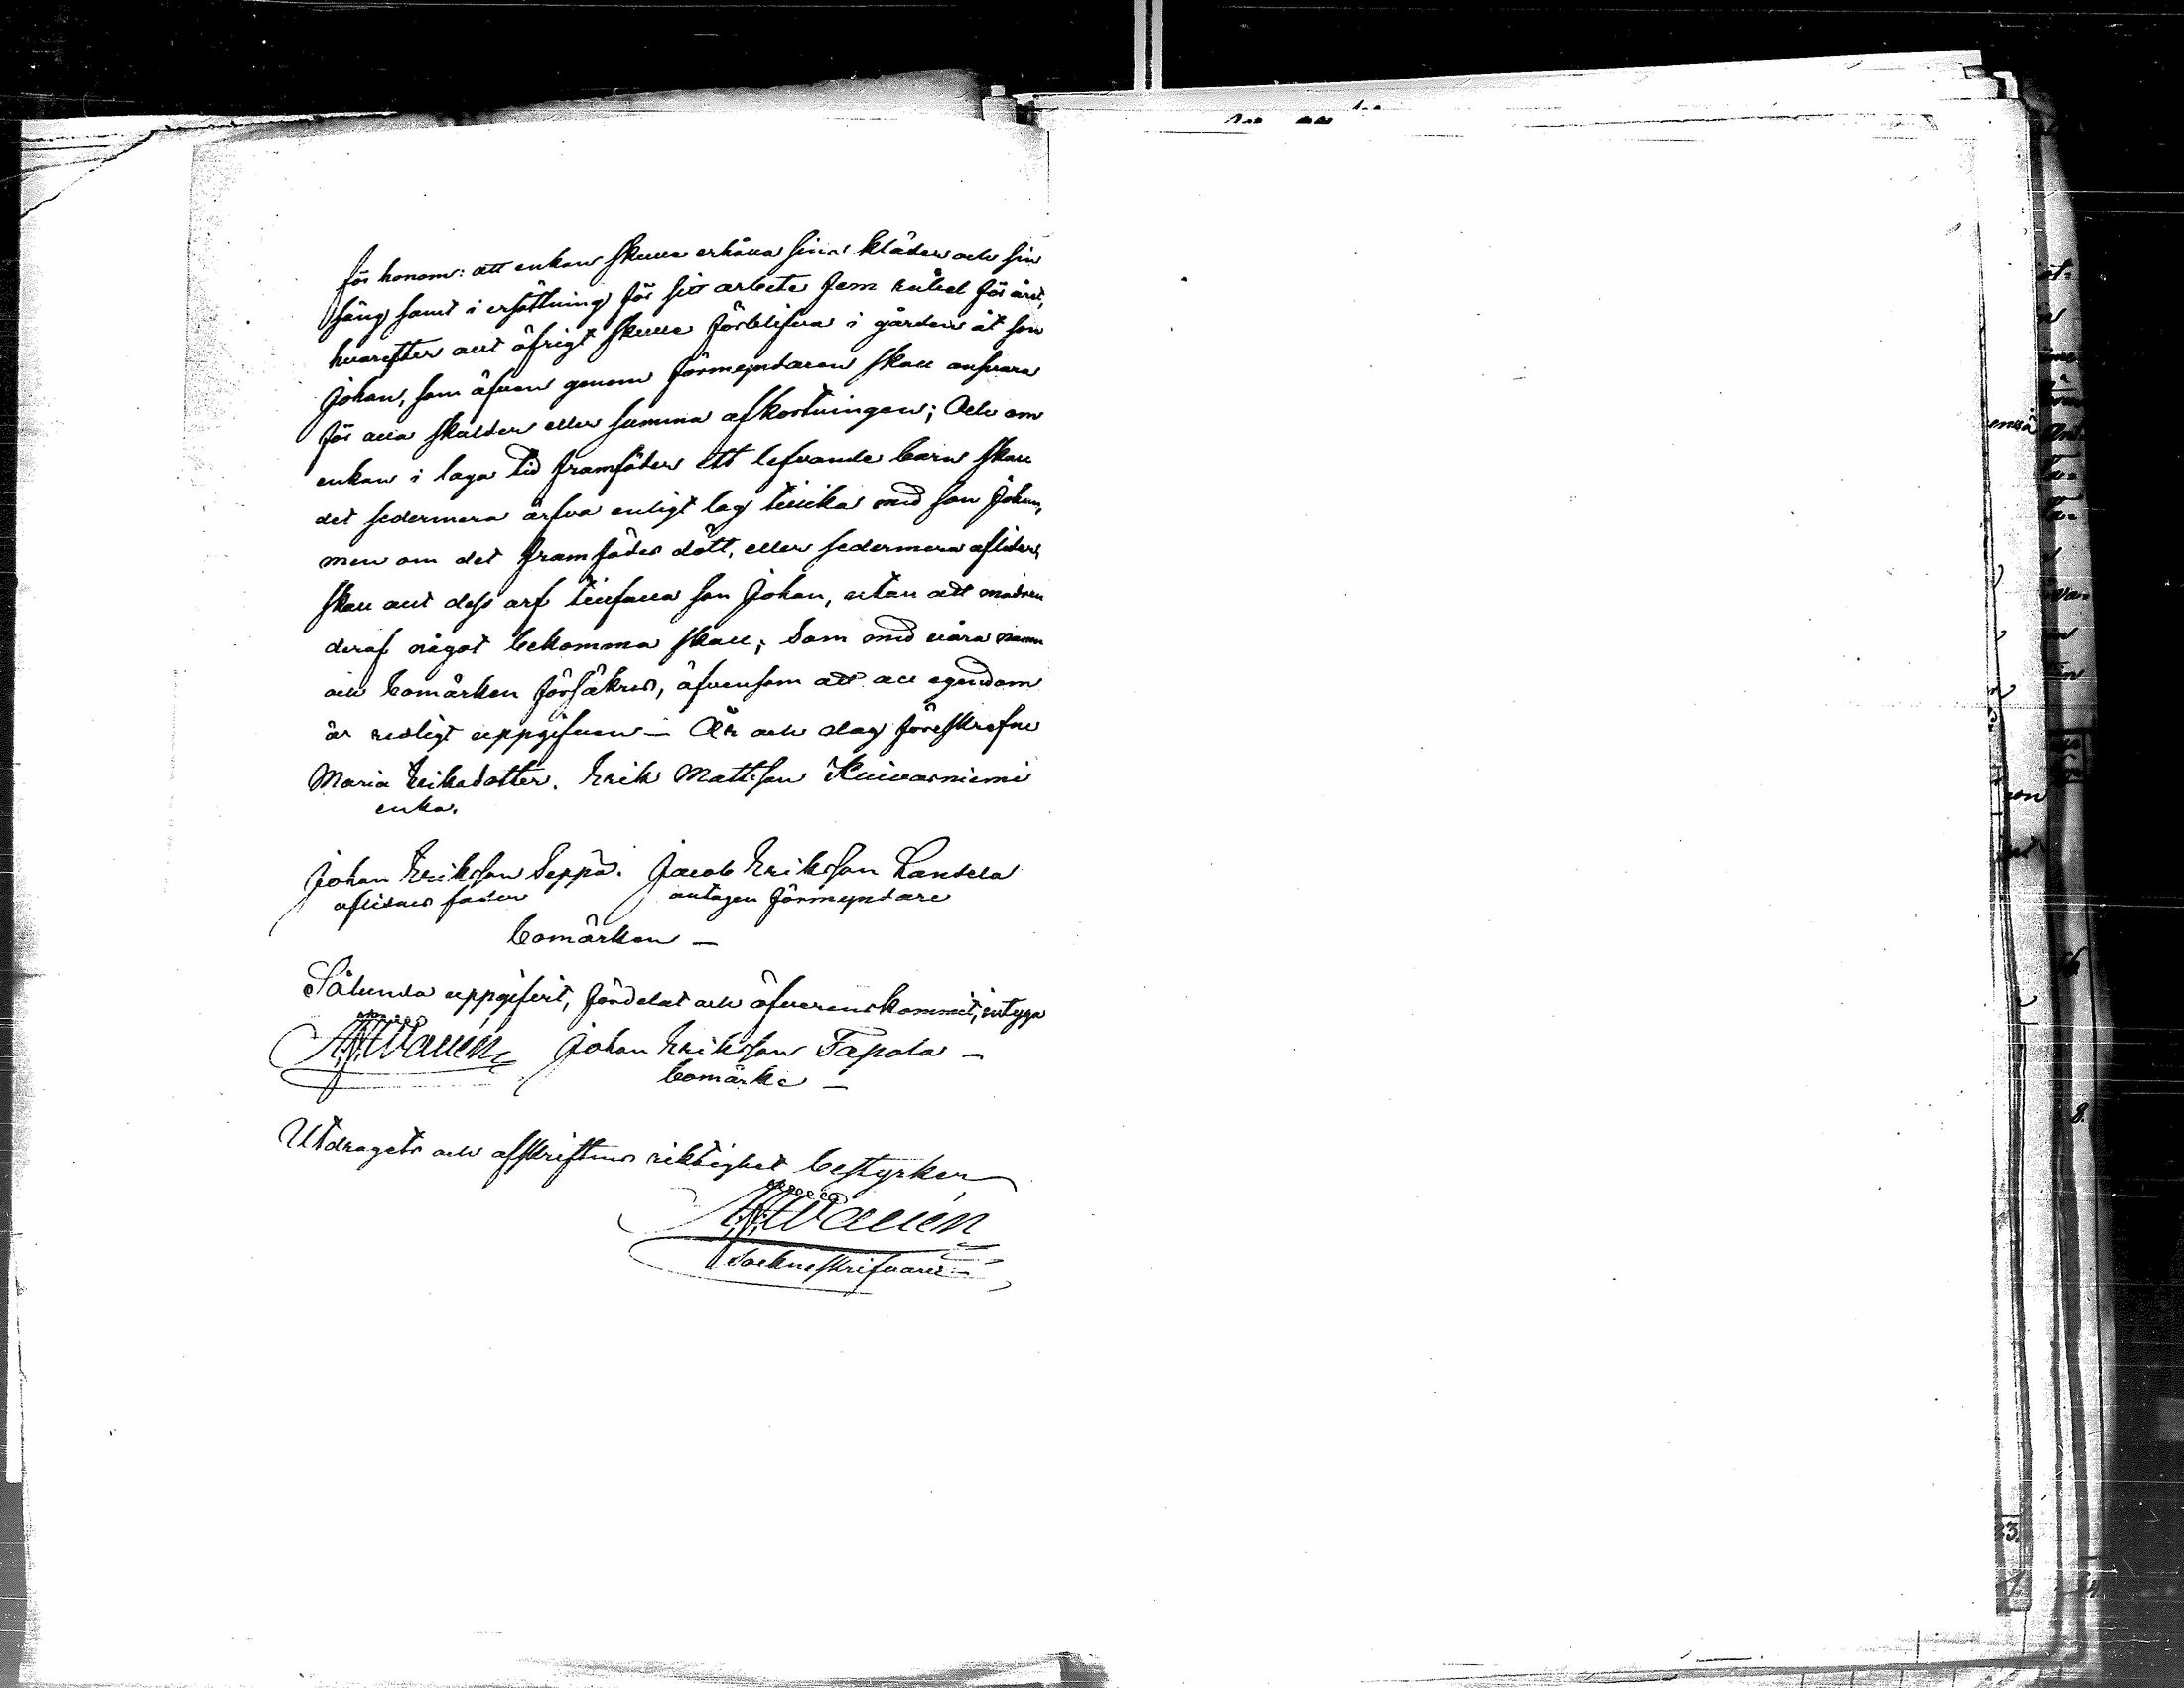 för honom: att enkan skulle erhålla sina kläder och sin
säng samt i ersättning för sitt arbete fem rubel för året,
hvarefter allt öfrigt skulle förblifva i gården åt son
Johan, som äfven genom förmyndaren skall ansvara
för alla skulder eller summa afkortningen; Och om
enkan i laga tid framföder ett lefvande barn skall
det sedermera ärfva enligt lag tillika med son Johan,
men om det framfödes dött, eller sedermera aflider,
skall allt dess arf tillfalla son Johan, utan att modren
deraf något bekomma skall; Som med våra namn
och bomärken försäkras, äfvensom att all egendom
är redligt uppgifven — År och dag föreskrefne
Maria Eriksdotter. Erik Mattsson Kuivasniemi
enka.
Johan Eriksson Seppä. Jacob Eriksson Landela
aflidnes fader antagen förmyndare
bomärken —
Sålunda uppgifvit, fördelat och öfverenskommit, intyga
Wallén Johan Eriksson Tapola —
bomärke —
Utdragets och afskriftens riktighet bestyrker
Wallén
Sockneskrifvare —